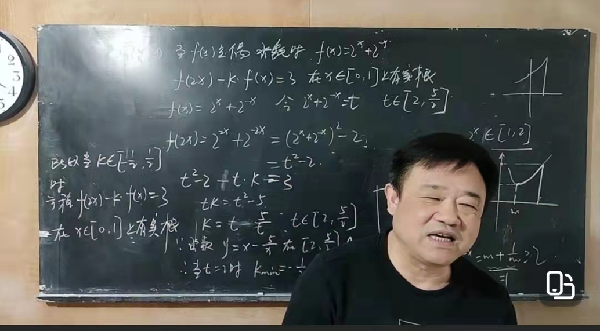 当f(x)为偶函数时 f(x)=2^x+2^-x
f(2x)-k·f(x)=3 在x∈[0,1]上有实根
f(x)=2^x+2^-x 令2^x+2^-x=t t∈[2,5/2]
f(2x)=2^2x+2^-2x=(2^x+2^-x)^2-2
=t^2-2
t^2-2-t·k=3
tk=t^2-5
k=t-5/t t∈[2,5/2]
y=x-5/x 在[2,5/2]
∴当t=2时 kmin=-
k∈[-1/2,1/2]
时
方程f(2x)-k f(x)=3
在x∈[0,1]上有实根
2^x∈[1,2]
m
=m+1/m=2